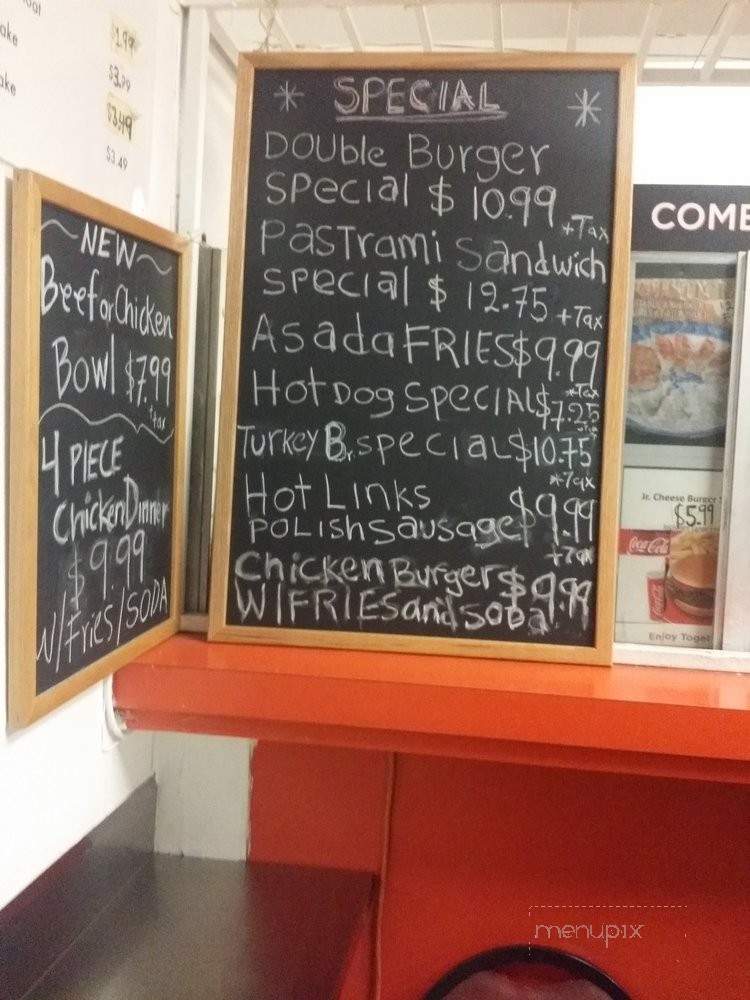 $1.99
ake
$3.79
ake
$3.49
$3.49
NEW
Beef or Chicken
Bowl $7.99
+tax
4 PIECE
ChickenDinner
$9.99
W/Fries/SODA
* SPECIAL *
DOUBLE BURGER
SPecial $ 10.99
+Tax
PasTrami Sandwich
SPecial $ 12.75
+Tax
Asada FRIES $9.99
+Tax
HoT DOg SPeCIAL $7.25
Turkey B. special $10.75
+Tax
HoT LINKS $9.99
POLISH Sausage
+Tax
Chicken Burger $9.99
W/FRIES and SODa
COMB
Jr. Cheese Burger
$5.99
Coca-Cola
Enjoy Toget
menupix